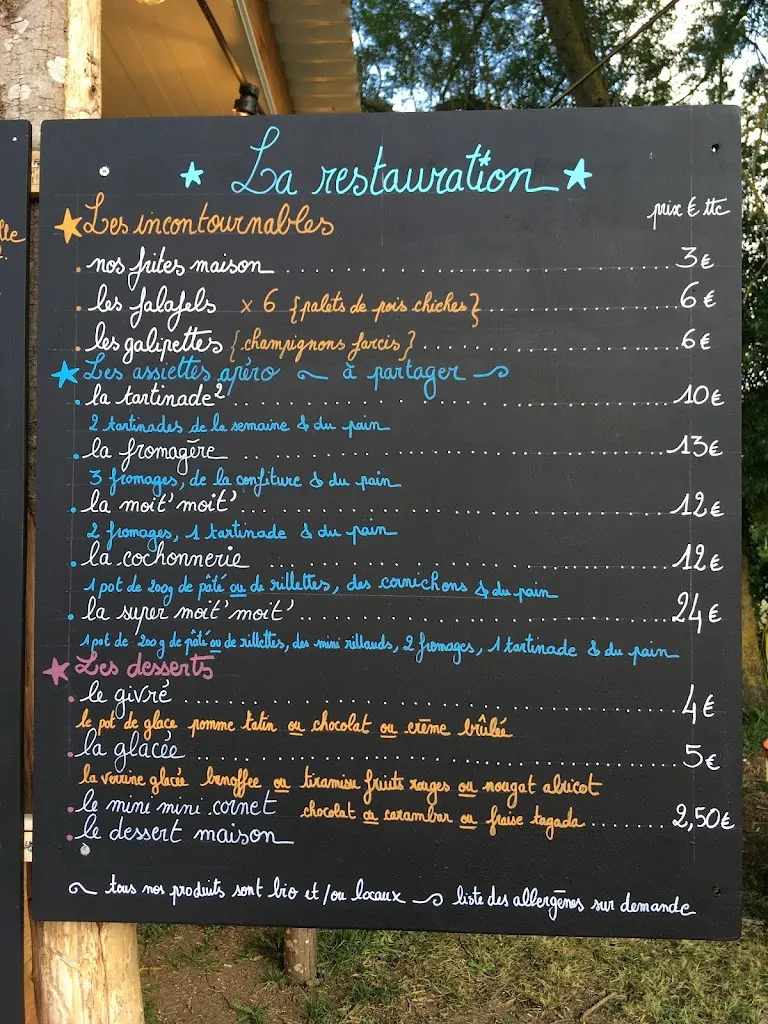 La restauration
prix € ttc
Les incontournables
nos frites maison 3€
les falafels x 6 {palets de pois chiches} 6€
les galipettes {champignons farcis} 6€
Les assiettes apéro ~ à partager ~
la tartinade² 10€
2 tartinades de la semaine & du pain
la fromagère 13€
3 fromages, de la confiture & du pain
la moit'moit' 12€
2 fromages, 1 tartinade & du pain
la cochonnerie 12€
1 pot de 200g de pâté ou de rillettes, des cornichons & du pain
la super moit'moit' 24€
1 pot de 200g de pâté ou de rillettes, des mini rillauds, 2 fromages, 1 tartinade & du pain
Les desserts
le givré 4€
le pot de glace pomme tatin ou chocolat ou crème brûlée
la glacée 5€
la verrine glacée banoffee ou tiramisu fruits rouges ou nougat abricot
le mini mini cornet chocolat ou carambar ou fraise tagada 2,50€
le dessert maison
~ tous nos produits sont bio et/ou locaux ~ liste des allergènes sur demande